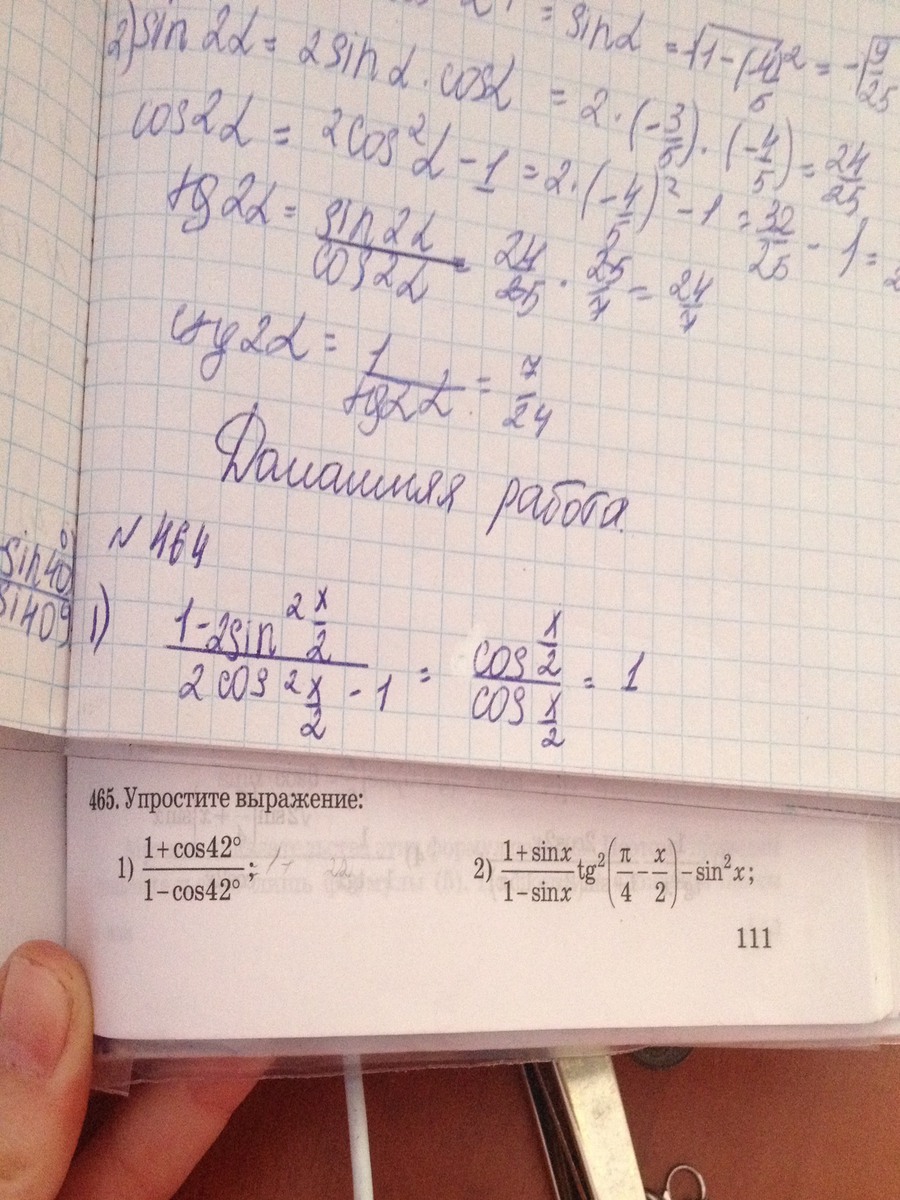 = sinα = √1-(-4/5)² = -√9/25
2) sin 2α = 2 sin α · cos α = 2 · (-3/5) · (-4/5) = 24/25
cos2α = 2cos²α - 1 = 2 · (-4/5)² - 1 = 32/25 - 1 =
tg 2α = sin 2α / cos 2α = 24/25 · 25/7 = 24/7
ctg 2α = 1 / tg2α = 7/24
Домашняя работа.
N 464
sin 40°
sin 40°
1) 1-2sin² x/2 / 2 cos² x/2 - 1 = cos x/2 / cos x/2 = 1
465. Упростите выражение:
1) 1+cos42° / 1-cos42° ; 2) 1+sinx / 1-sinx tg²(π/4 - x/2) - sin²x;
111